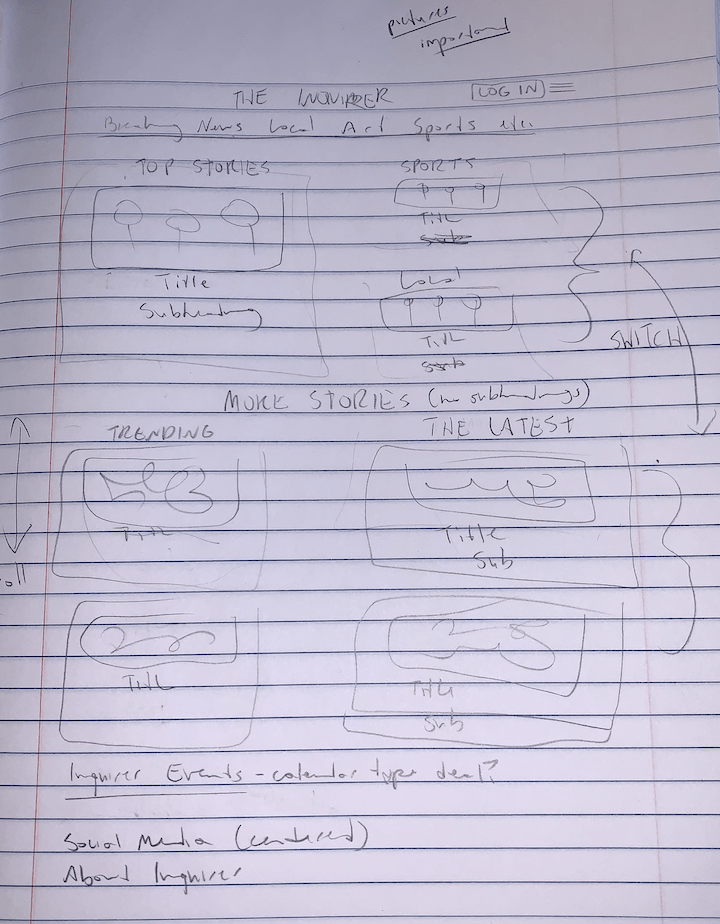 pictures
important
THE INQUIRER LOG IN
Breaking News Local Art Sports etc.
TOP STORIES SPORTS
Title
Sub
Title
Subheading
Local
Title
Sub
SWITCH
MORE STORIES (no subheadings)
TRENDING THE LATEST
Title Title
Sub
oll
Title Title
Sub
Inquirer Events - calendar type deal?
Social Media (centered)
About Inquirer